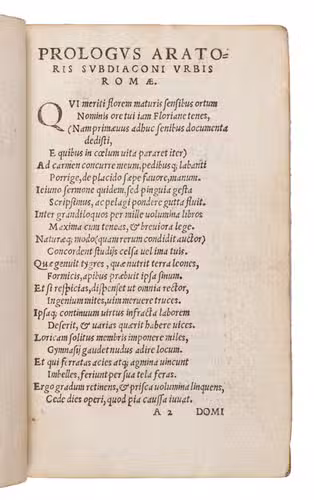 PROLOGVS ARATO-
RIS SVBDIACONI VRBIS
ROMÆ.
QVI meriti florem maturis sensibus ortum
Nominis ore tui iam Floriane tenes,
(Nam primæuus adhuc senibus documenta
dedisti,
E quibus in cœlum uita pararet iter)
Ad carmen concurre meum, pedibusq; labanti
Porrige, de placido sæpe fauore, manum.
Ieiuno sermone quidem, sed pinguia gesta
Scripsimus, ac pelagi pondere gutta fluit.
Inter grandiloquos per mille uolumina libros
Maxima cum teneas, & breuiora lege.
Naturæq; modo (quam rerum condidit auctor)
Concordent studijs celsa uel ima tuis.
Quæ genuit tygres, quæ nutrit terra leones,
Formicis, apibus præbuit ipsa sinum.
Et si respicias, dispenset ut omnia rector,
Ingenium mites, uim meruere truces.
Ipsaq; continuum uirtus infracta laborem
Deserit, & uarias quærit habere uices.
Loricam solitus membris imponere miles,
Gymnasij gaudet nudus adire locum.
Et qui ferratas acies atq; agmina uincunt
Imbelles, feriunt per sua tela feras.
Ergo gradum retinens, & prisca uolumina linquens,
Cede dies operi, quod pia caussa iuuat.
A 2 DOMI